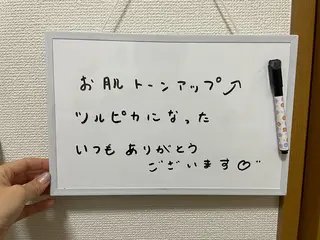 お肌トーンアップ↗
ツルピカになった
いつもありがとう
ございます♡